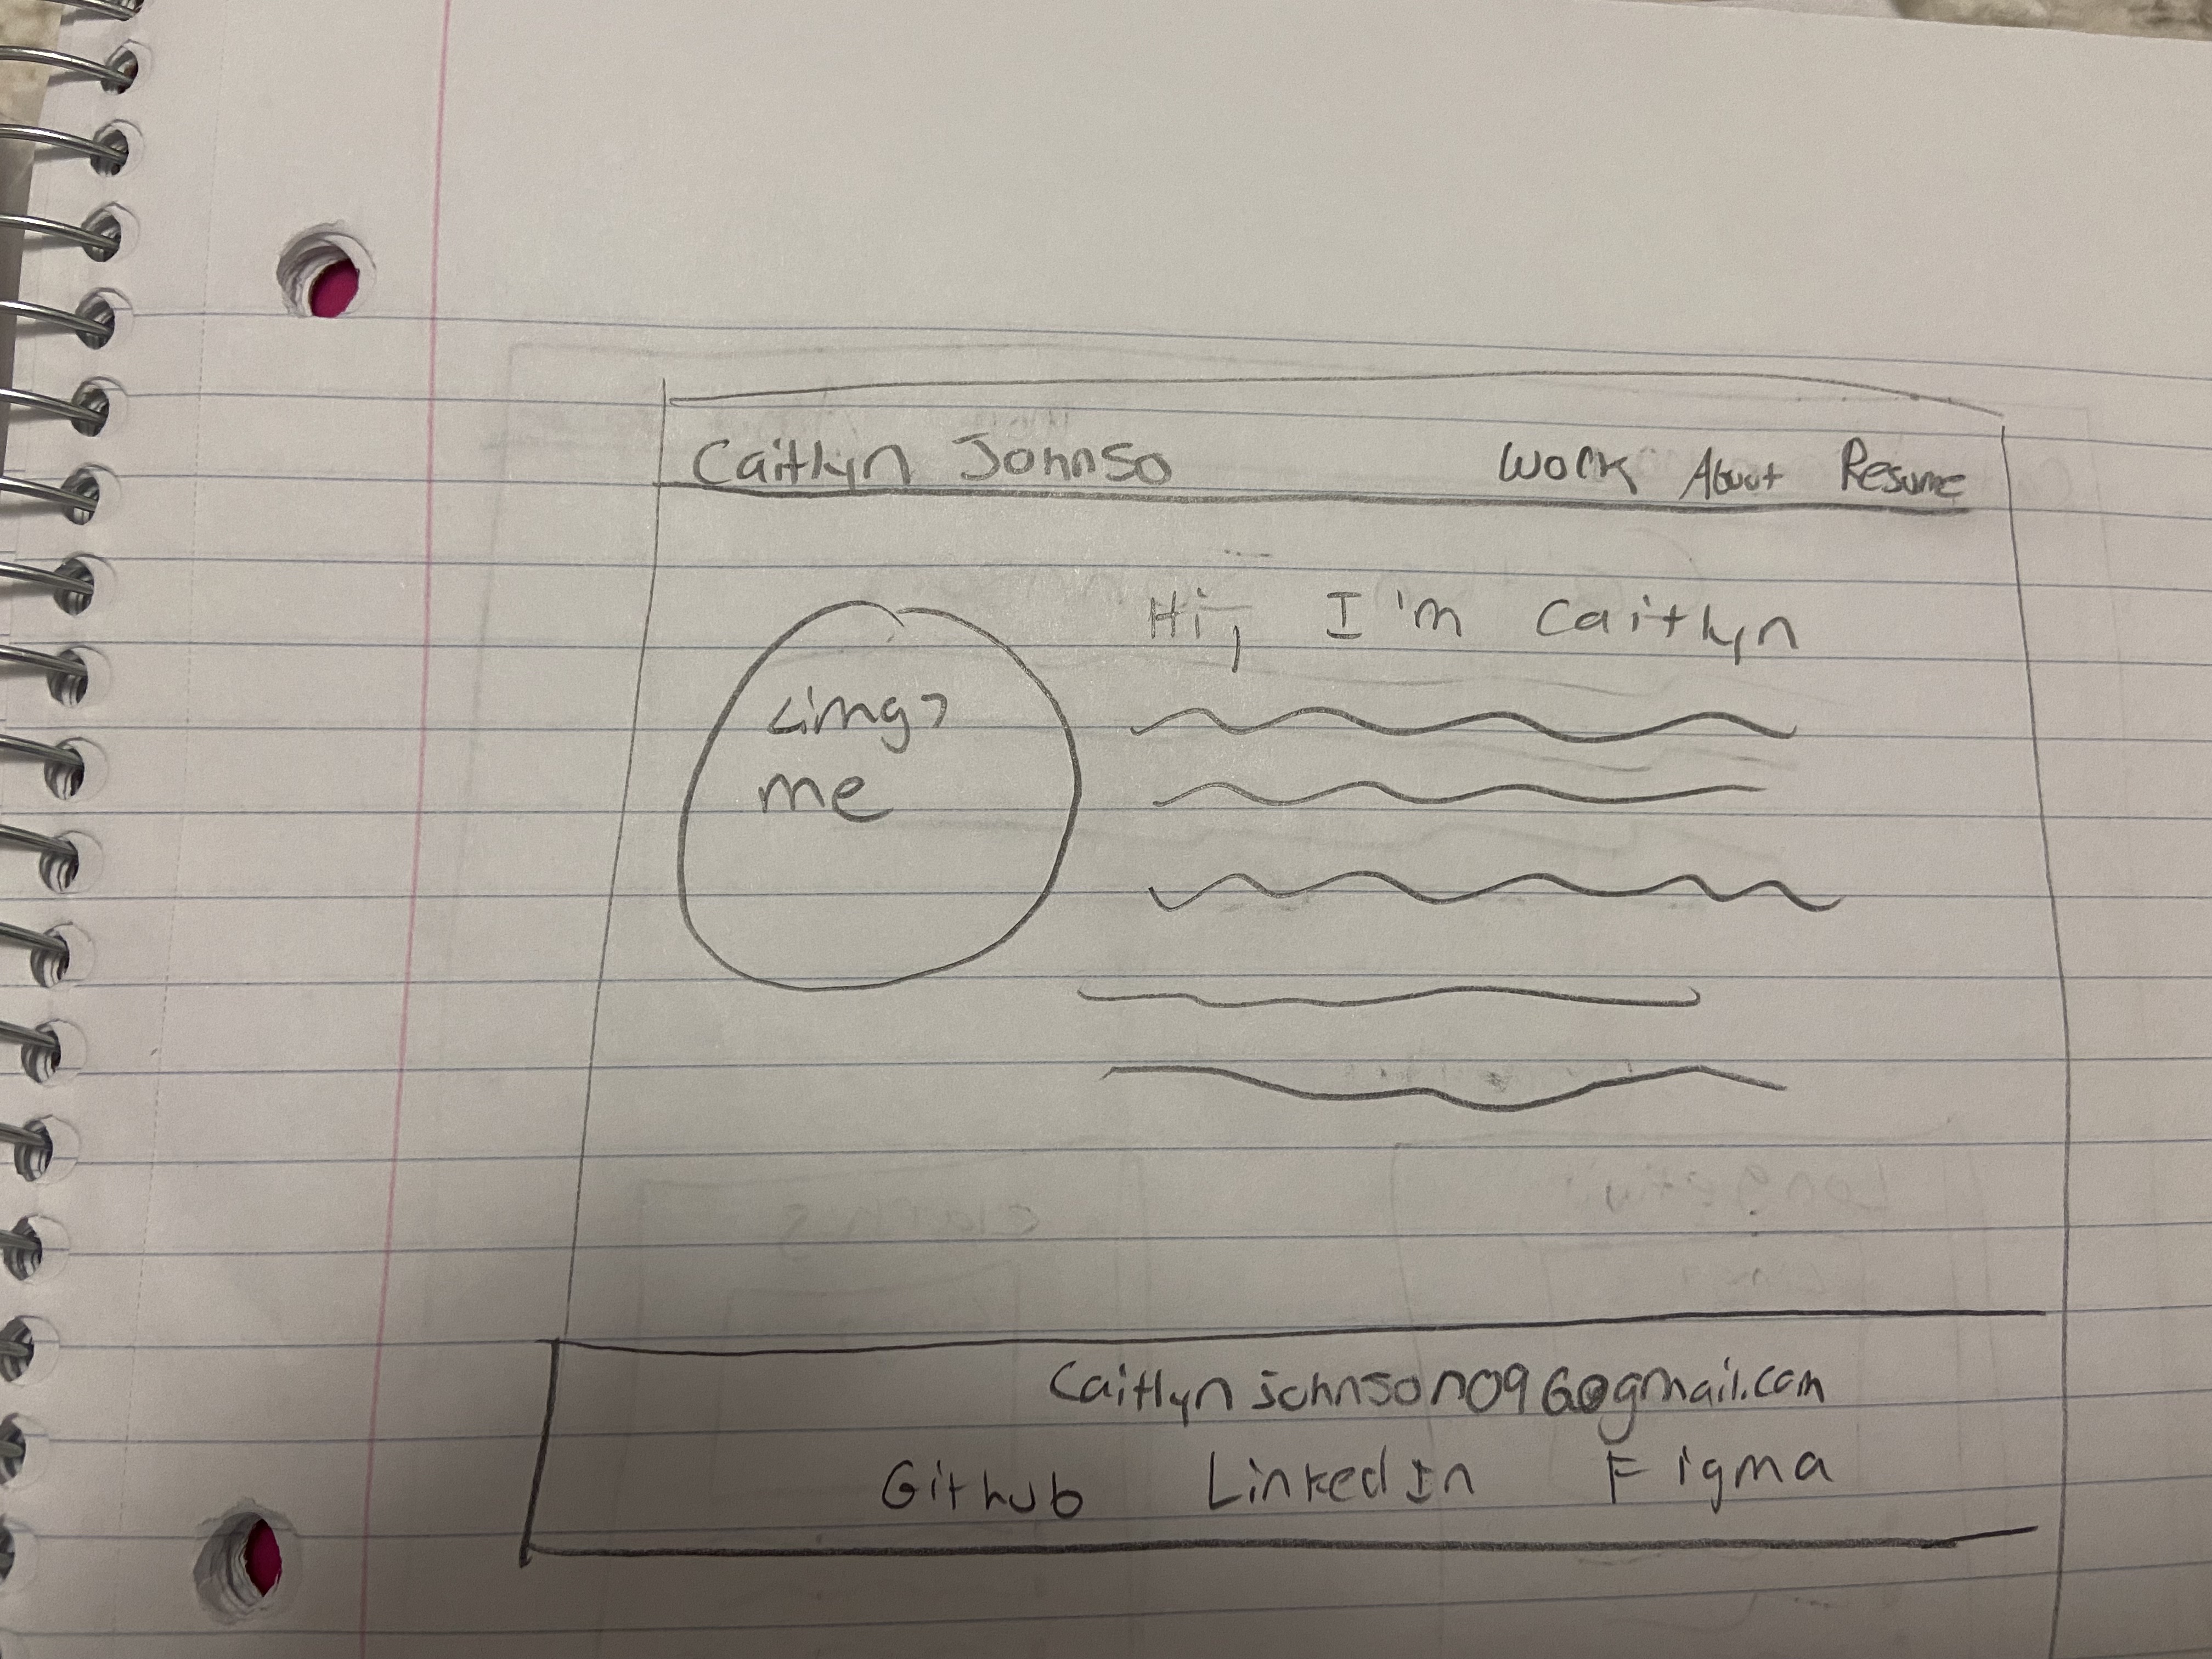 Caitlyn Johnso Work About Resume
Hi, I'm Caitlyn
<img>
me
Caitlynjohnson096@gmail.com
Github LinkedIn Figma